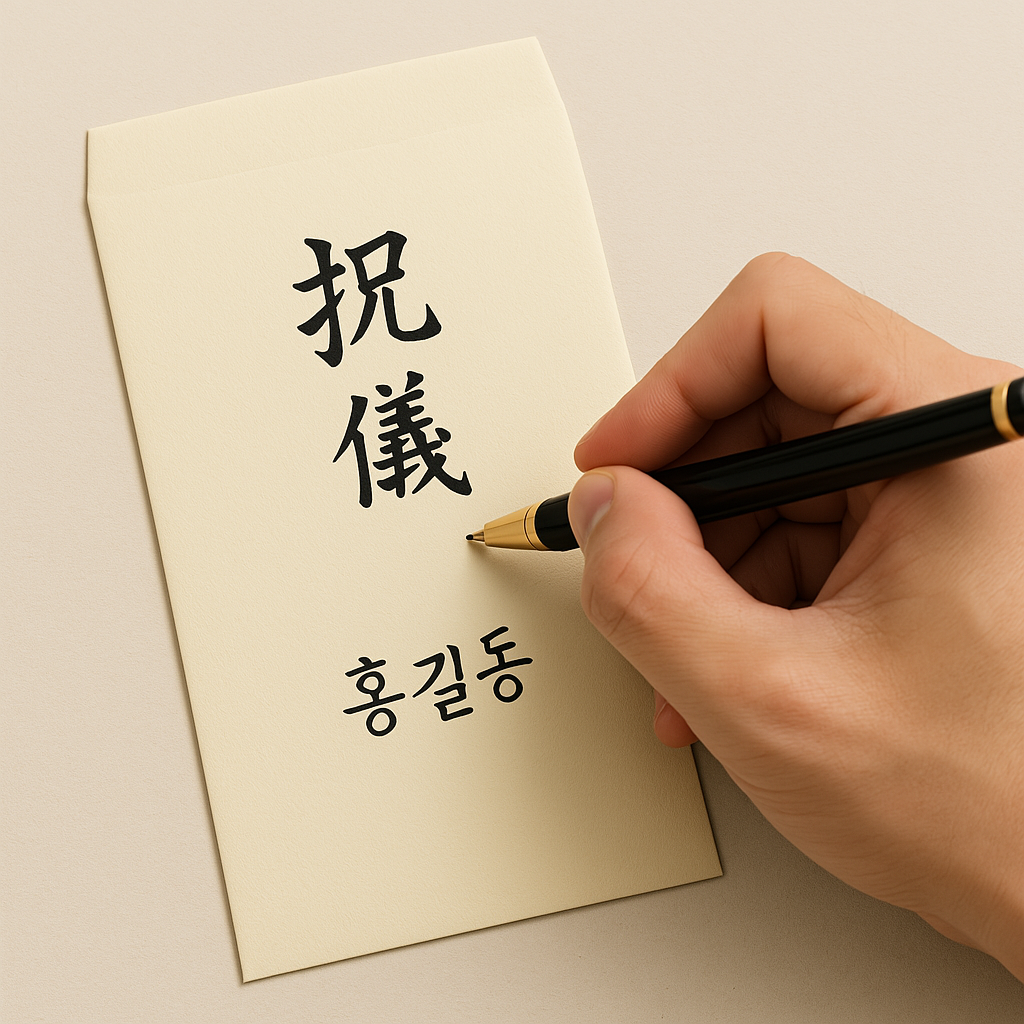 祝儀
홍길동